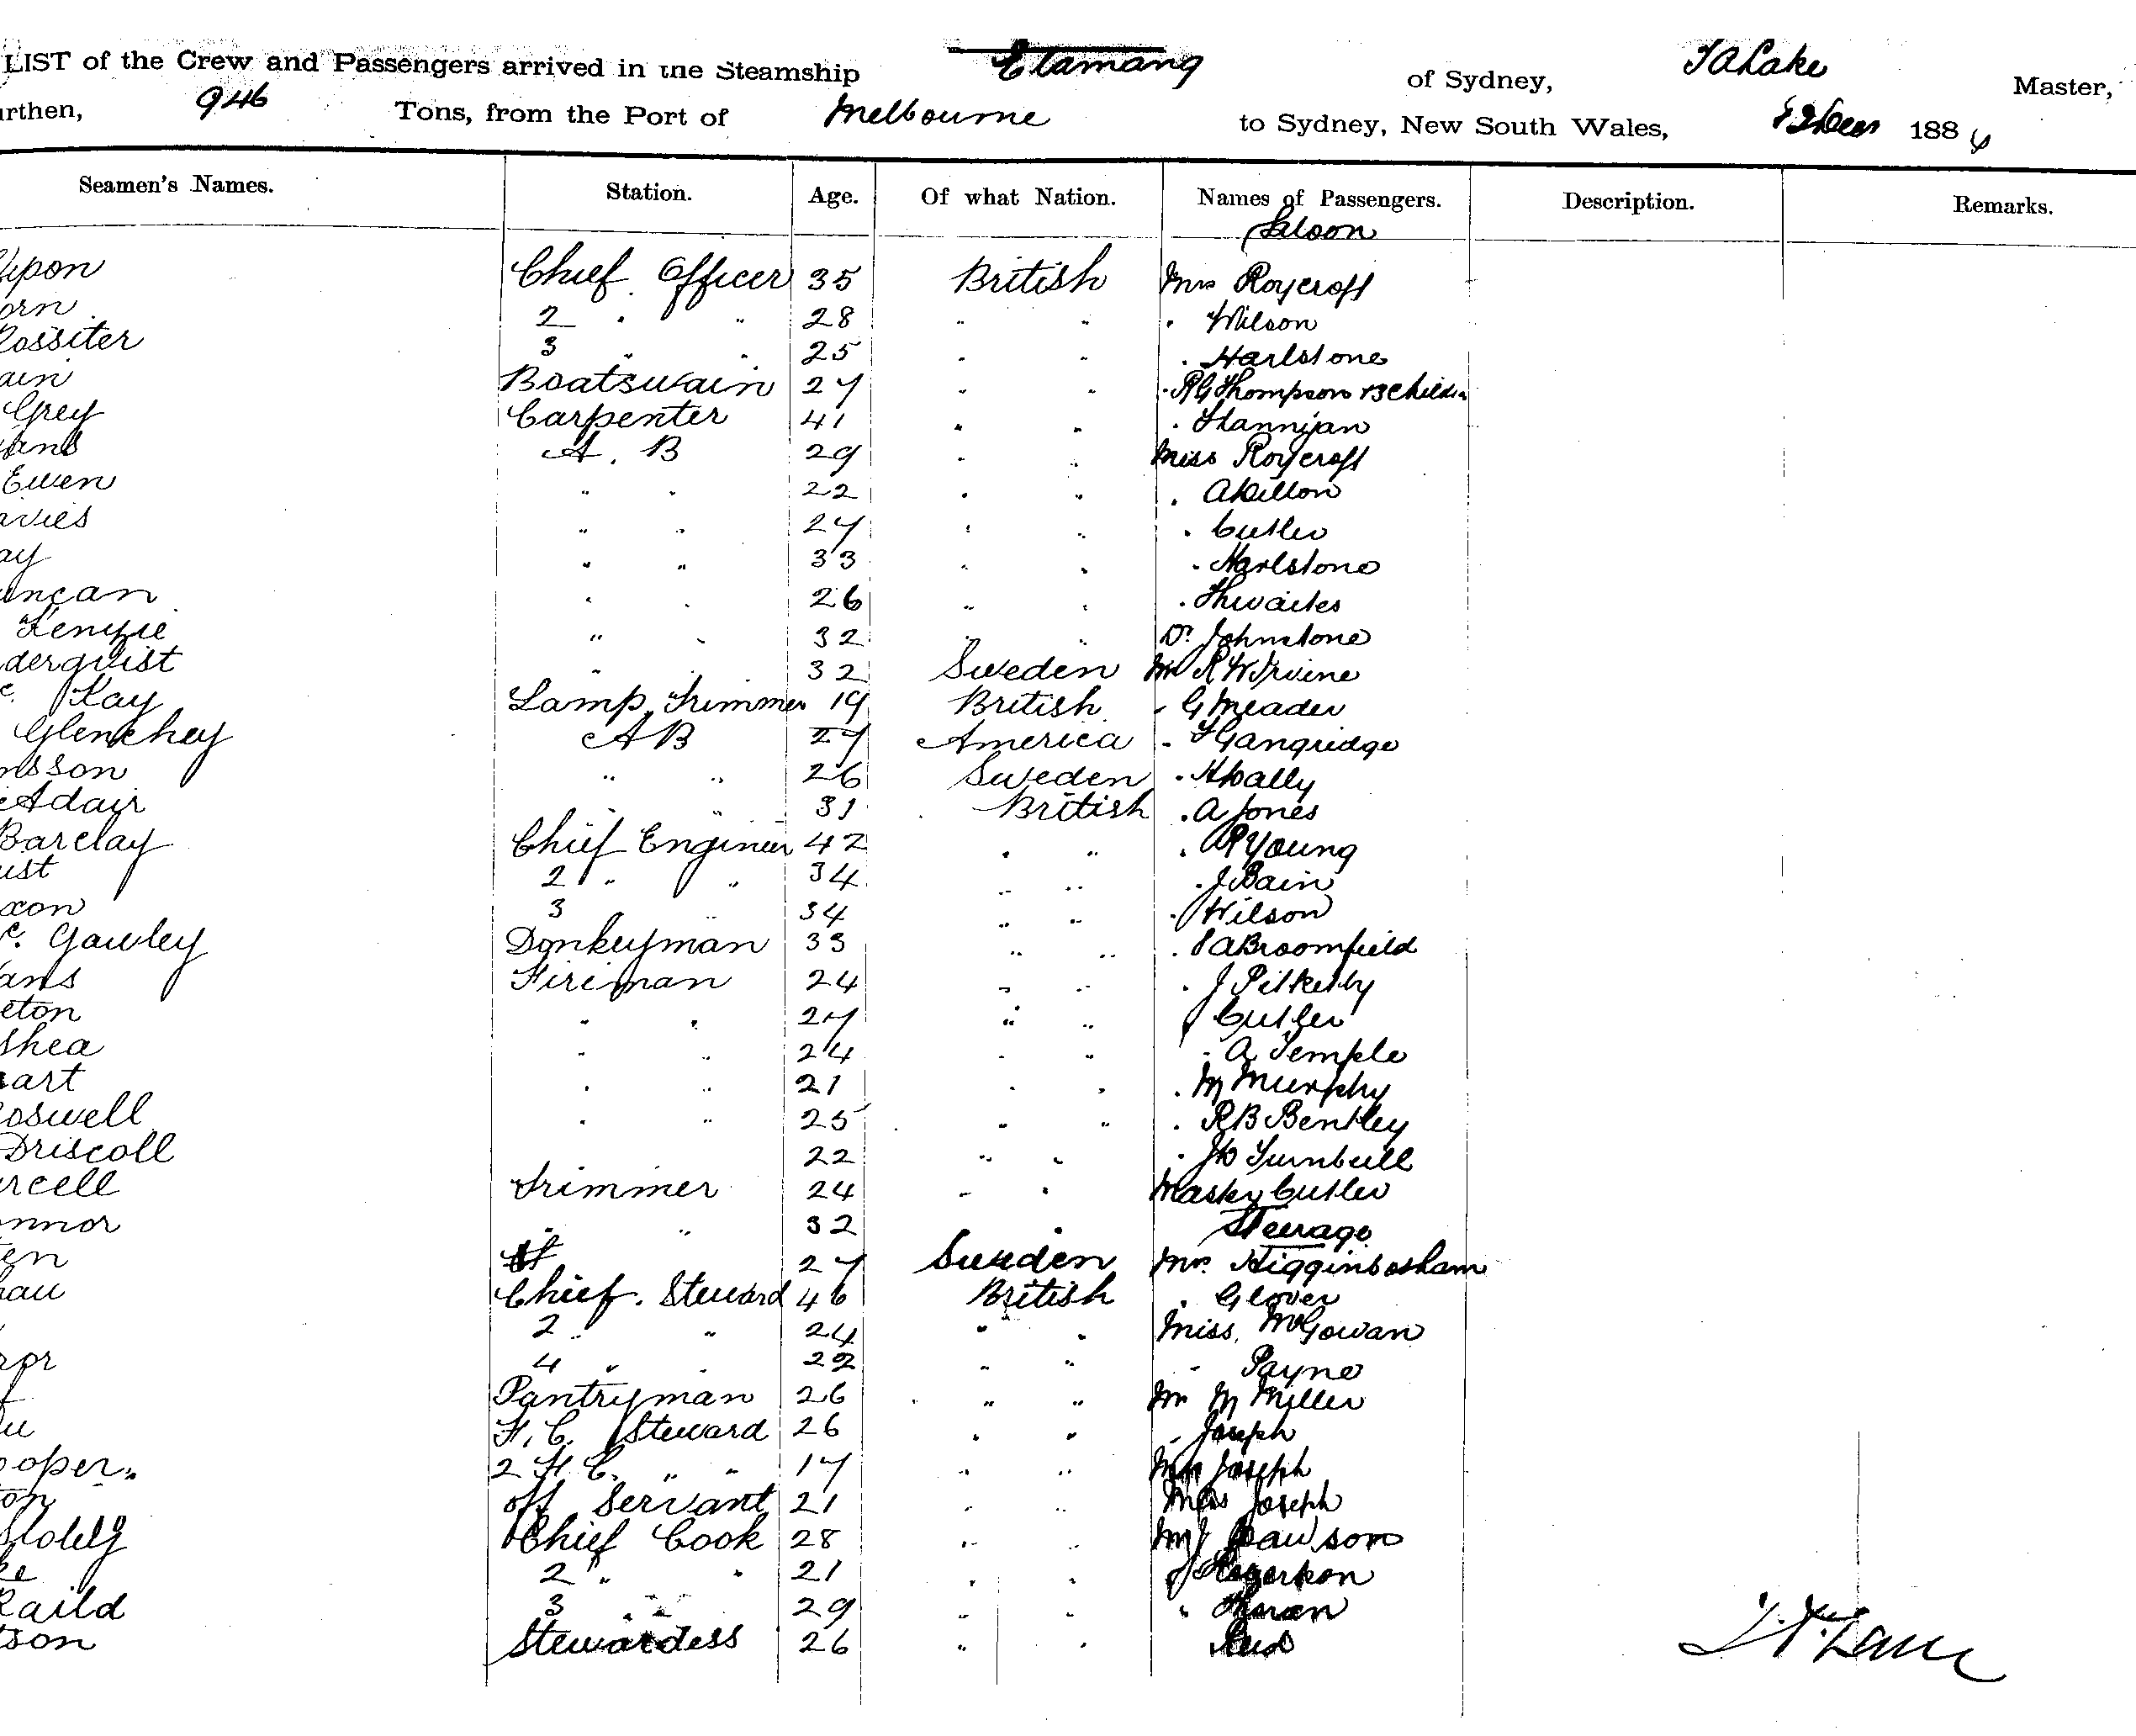 LIST of the Crew and Passengers arrived in the Steamship Elamang of Sydney, Master,
rthen, 946 Tons, from the Port of Melbourne to Sydney, New South Wales, Decr 1884
Seamen's Names. Station. Age. Of what Nation. Names of Passengers. Description. Remarks.
Saloon
pon Chief Officer 35 British Mrs Roycroft
orn 2 " " 28 " " " Wilson
Rossiter 3 " " 25 " " " Harlstone
ain Boatswain 27 " " " R G Thompson & 3 Childn
Grey Carpenter 41 " " " Hannigan
ans A. B 29 " " Miss Roycroft
Ewen " " 22 " " " A Dillon
avies " " 27 " " " Cutler
ay " " 33 " " " Harlstone
uncan " " 26 " " " Thwaites
Kenzie " " 32 " " Dr Johnstone
derquist " 32 Sweden Mr R W Irvine
c. Kay Lamp Trimmer 19 British " G Meader
Glenchey A B 27 America " Gangridge
nsson " " 26 Sweden " H Dally
Adair " 31 British " A Jones
Barclay Chief Engineer 42 " " " Young
ust 2 " " 34 " " " J Bain
xon 3 " 34 " " " Wilson
c. Gawley Donkeyman 33 " " " Broomfield
ans Fireman 24 " " " J Pitkethly
eton " " 27 " " " Cutler
shea " " 24 " " " A Temple
art " " 21 " " " M Murphy
oswell " " 25 " " " R B Bentley
Driscoll 22 " " " Turnbull
rcell Trimmer 24 " " Master Cutler
nnor " " 32 " Steerage
en 27 Sweden Mrs. Higginbotham
au Chief. Steward 46 British " Glover
2 " " 24 " " Miss. McGowan
ror 4 " " 22 " " " Payne
Pantryman 26 " " Mr M Miller
u F. C. Steward 26 " " " Joseph
ooper. 2 F. C. " " 17 " " Joseph
on off Servant 21 " " Joseph
Chief Cook 28 " " Dawson
ke 2 " " 21 " "
Raild 3 " " 29 " " "
tson Stewardess 26 " "